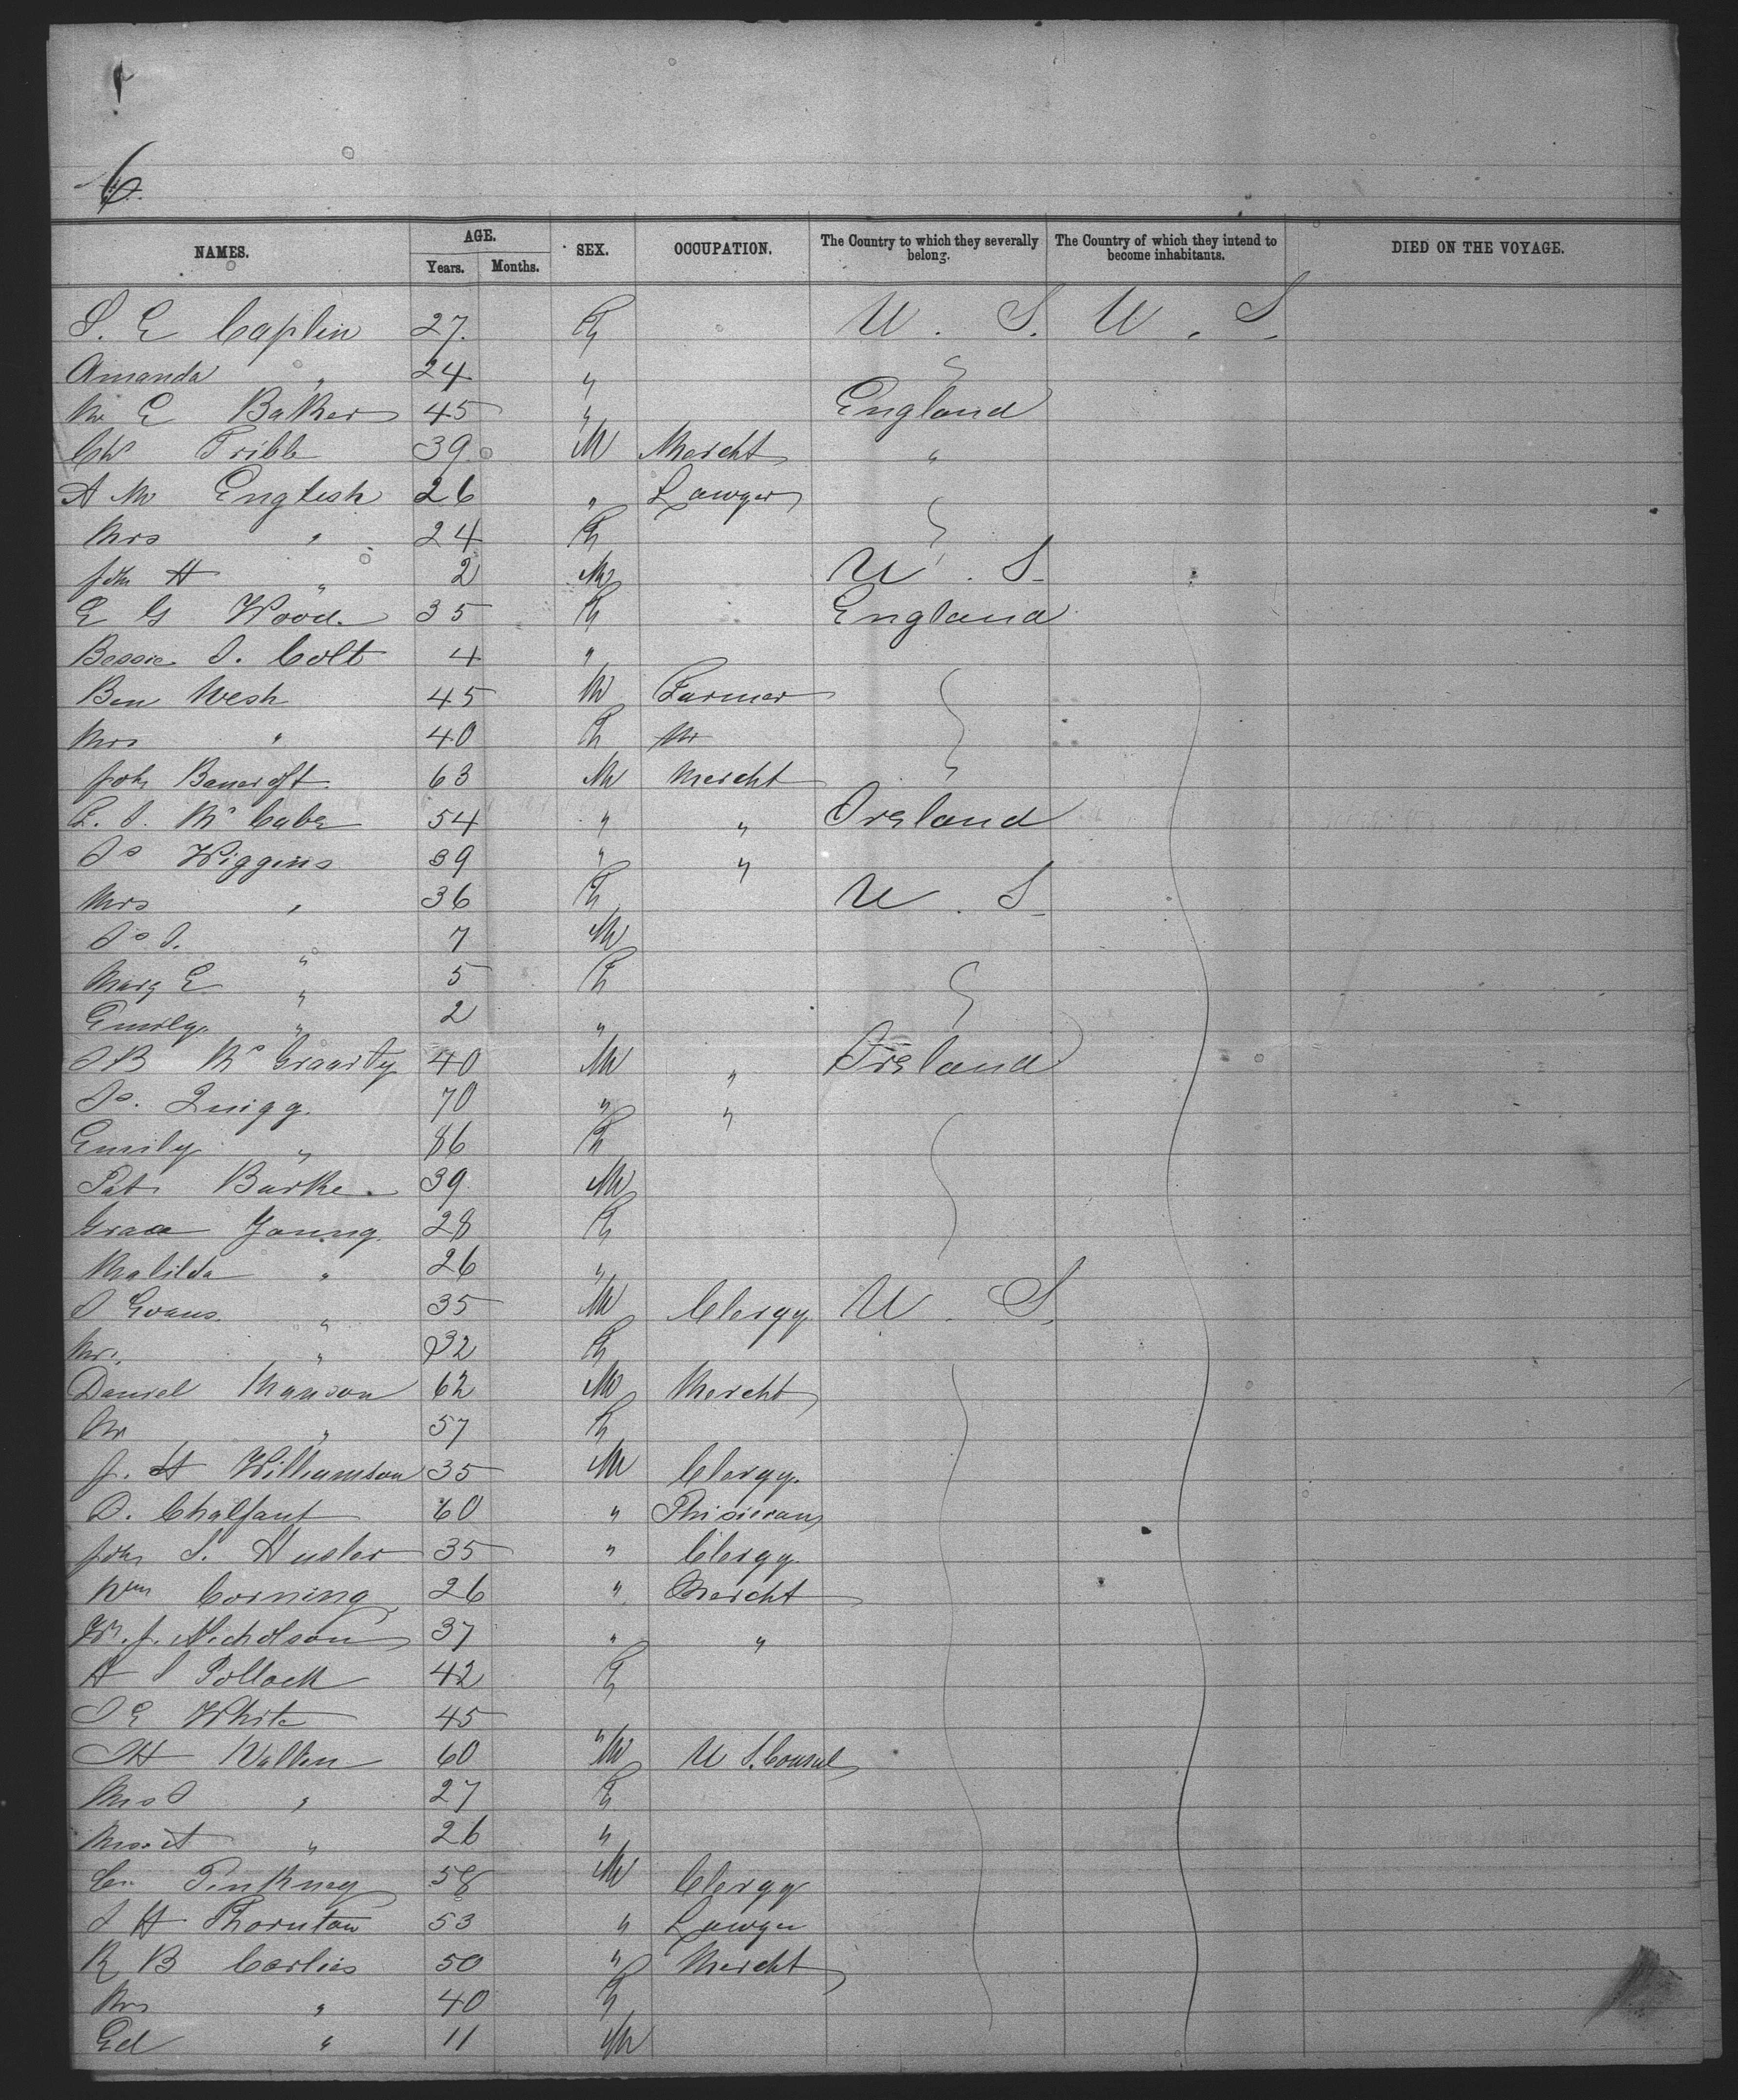 6.
NAMES. AGE. Years. Months. SEX. OCCUPATION. The Country to which they severally belong. The Country of which they intend to become inhabitants. DIED ON THE VOYAGE.
S. E Caplin 27. F U. S. U. S.
Amanda " 24 "
M E Baker 45 " England
Ch Tribb 39 M Mercht "
A M English 26 " Lawyer
Mrs " 24 F
John H " 2 M U. S.
E G Wood. 35 F England
Bessie S. Colt 4 "
Ben Wesh 45 M Farmer
Mrs " 40 F
John Bancroft 63 M Mercht
Mc Cabe 54 " " Ireland
Js Wiggins 39 " "
Mrs " 36 F U. S.
Js S. " 7 M
Mary E " 5 F
Emily " 2 "
S B Mc Graarty 40 M " Ireland
Js. Quigg 70 " "
Emily " F
Pat Burke. 39 M
Grace Young 28 F
Matilda " 26 "
S Evans " 35 M Clergy U. S.
Mrs. " 32 F
Daniel Manson 62 M Mercht
" 57 F
J. H Williamson 35 M Clergy.
D. Chalfant 60 " Phisician
John S. Husler 35 " Clergy
Wm Corning 26 " Mercht
W. J. Nicholson 37 " "
A S Pollock 42 F
S E White 45 "
60 M U S. Consul
Mrs S " 27 F
" 26 "
Pinkney 58 M Clergy
S H Thornton 53 " Lawyer
R B Corlies 50 " Mercht
Mrs " 40 F
Ed " 11 M